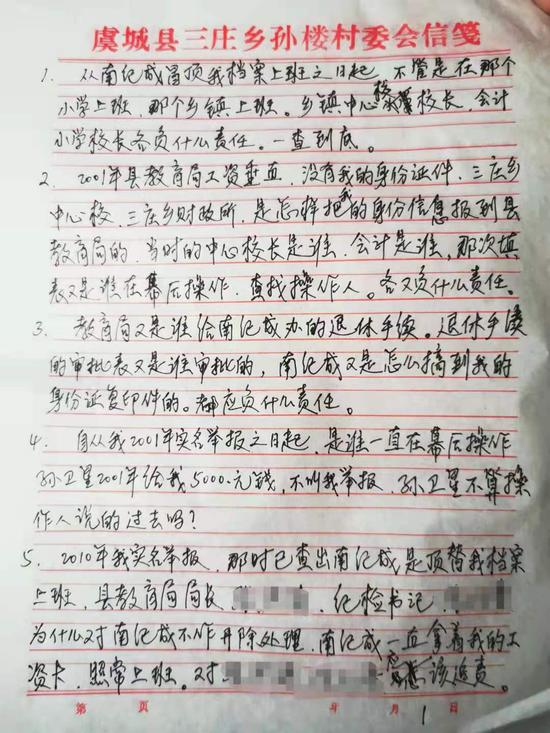 虞城县三庄乡孙楼村委会信笺
1. 从南纪成冒顶我档案上班之日起,不管是在那个
小学上班,那个乡镇上班。乡镇中心校校长,会计
小学校长各负什么责任。一查到底。
2. 2001年县教育局工资垂直,没有我的身份证件,三庄乡
中心校,三庄乡财政所,是怎样把我的身份信息报到县
教育局的,当时的中心校长是谁,会计是谁,那次填
表又是谁在幕后操作,查找操作人。各又负什么责任。
3. 教育局又是谁给南纪成办的退休手续。退休手续
的审批表又是谁审批的,南纪成又是怎么搞到我的
身份证复印件的。都应负什么责任。
4. 自从我2001年实名举报之日起,是谁一直在幕后操作
孙卫星2001年给我5000.元钱,不叫我举报,孙卫星不算操
作人说的过去吗?
5. 2010年我实名举报,那时已查出南纪成是顶替我档案
上班,县教育局局长,纪检书记,
为什么对南纪成不作开除处理,南纪成一直拿着我的工
资卡,照常上班。对应该追责。
第 页 年 月 日
1